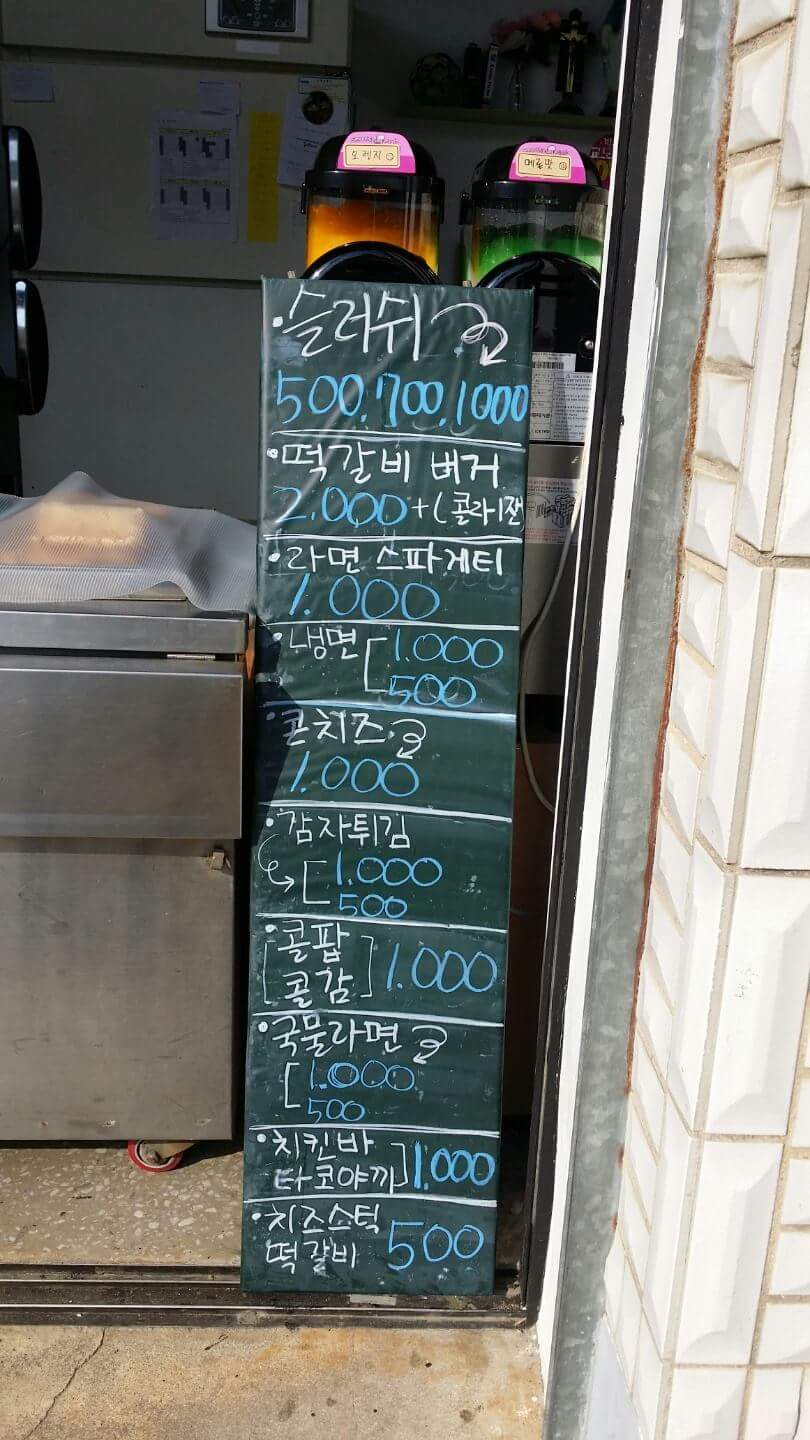 오렌지
메론맛
·슬러쉬
500,700,1000
·떡갈비 버거
2.000+(콜라1잔
·라면 스파게티
1.000
·냉면 [1.000
500
·콘치즈
1.000
·감자튀김
[1.000
500
·[콜팝
콜감] 1.000
·국물라면
[1.000
500
·치킨바
타코야끼] 1.000
·치즈스틱
떡갈비 500